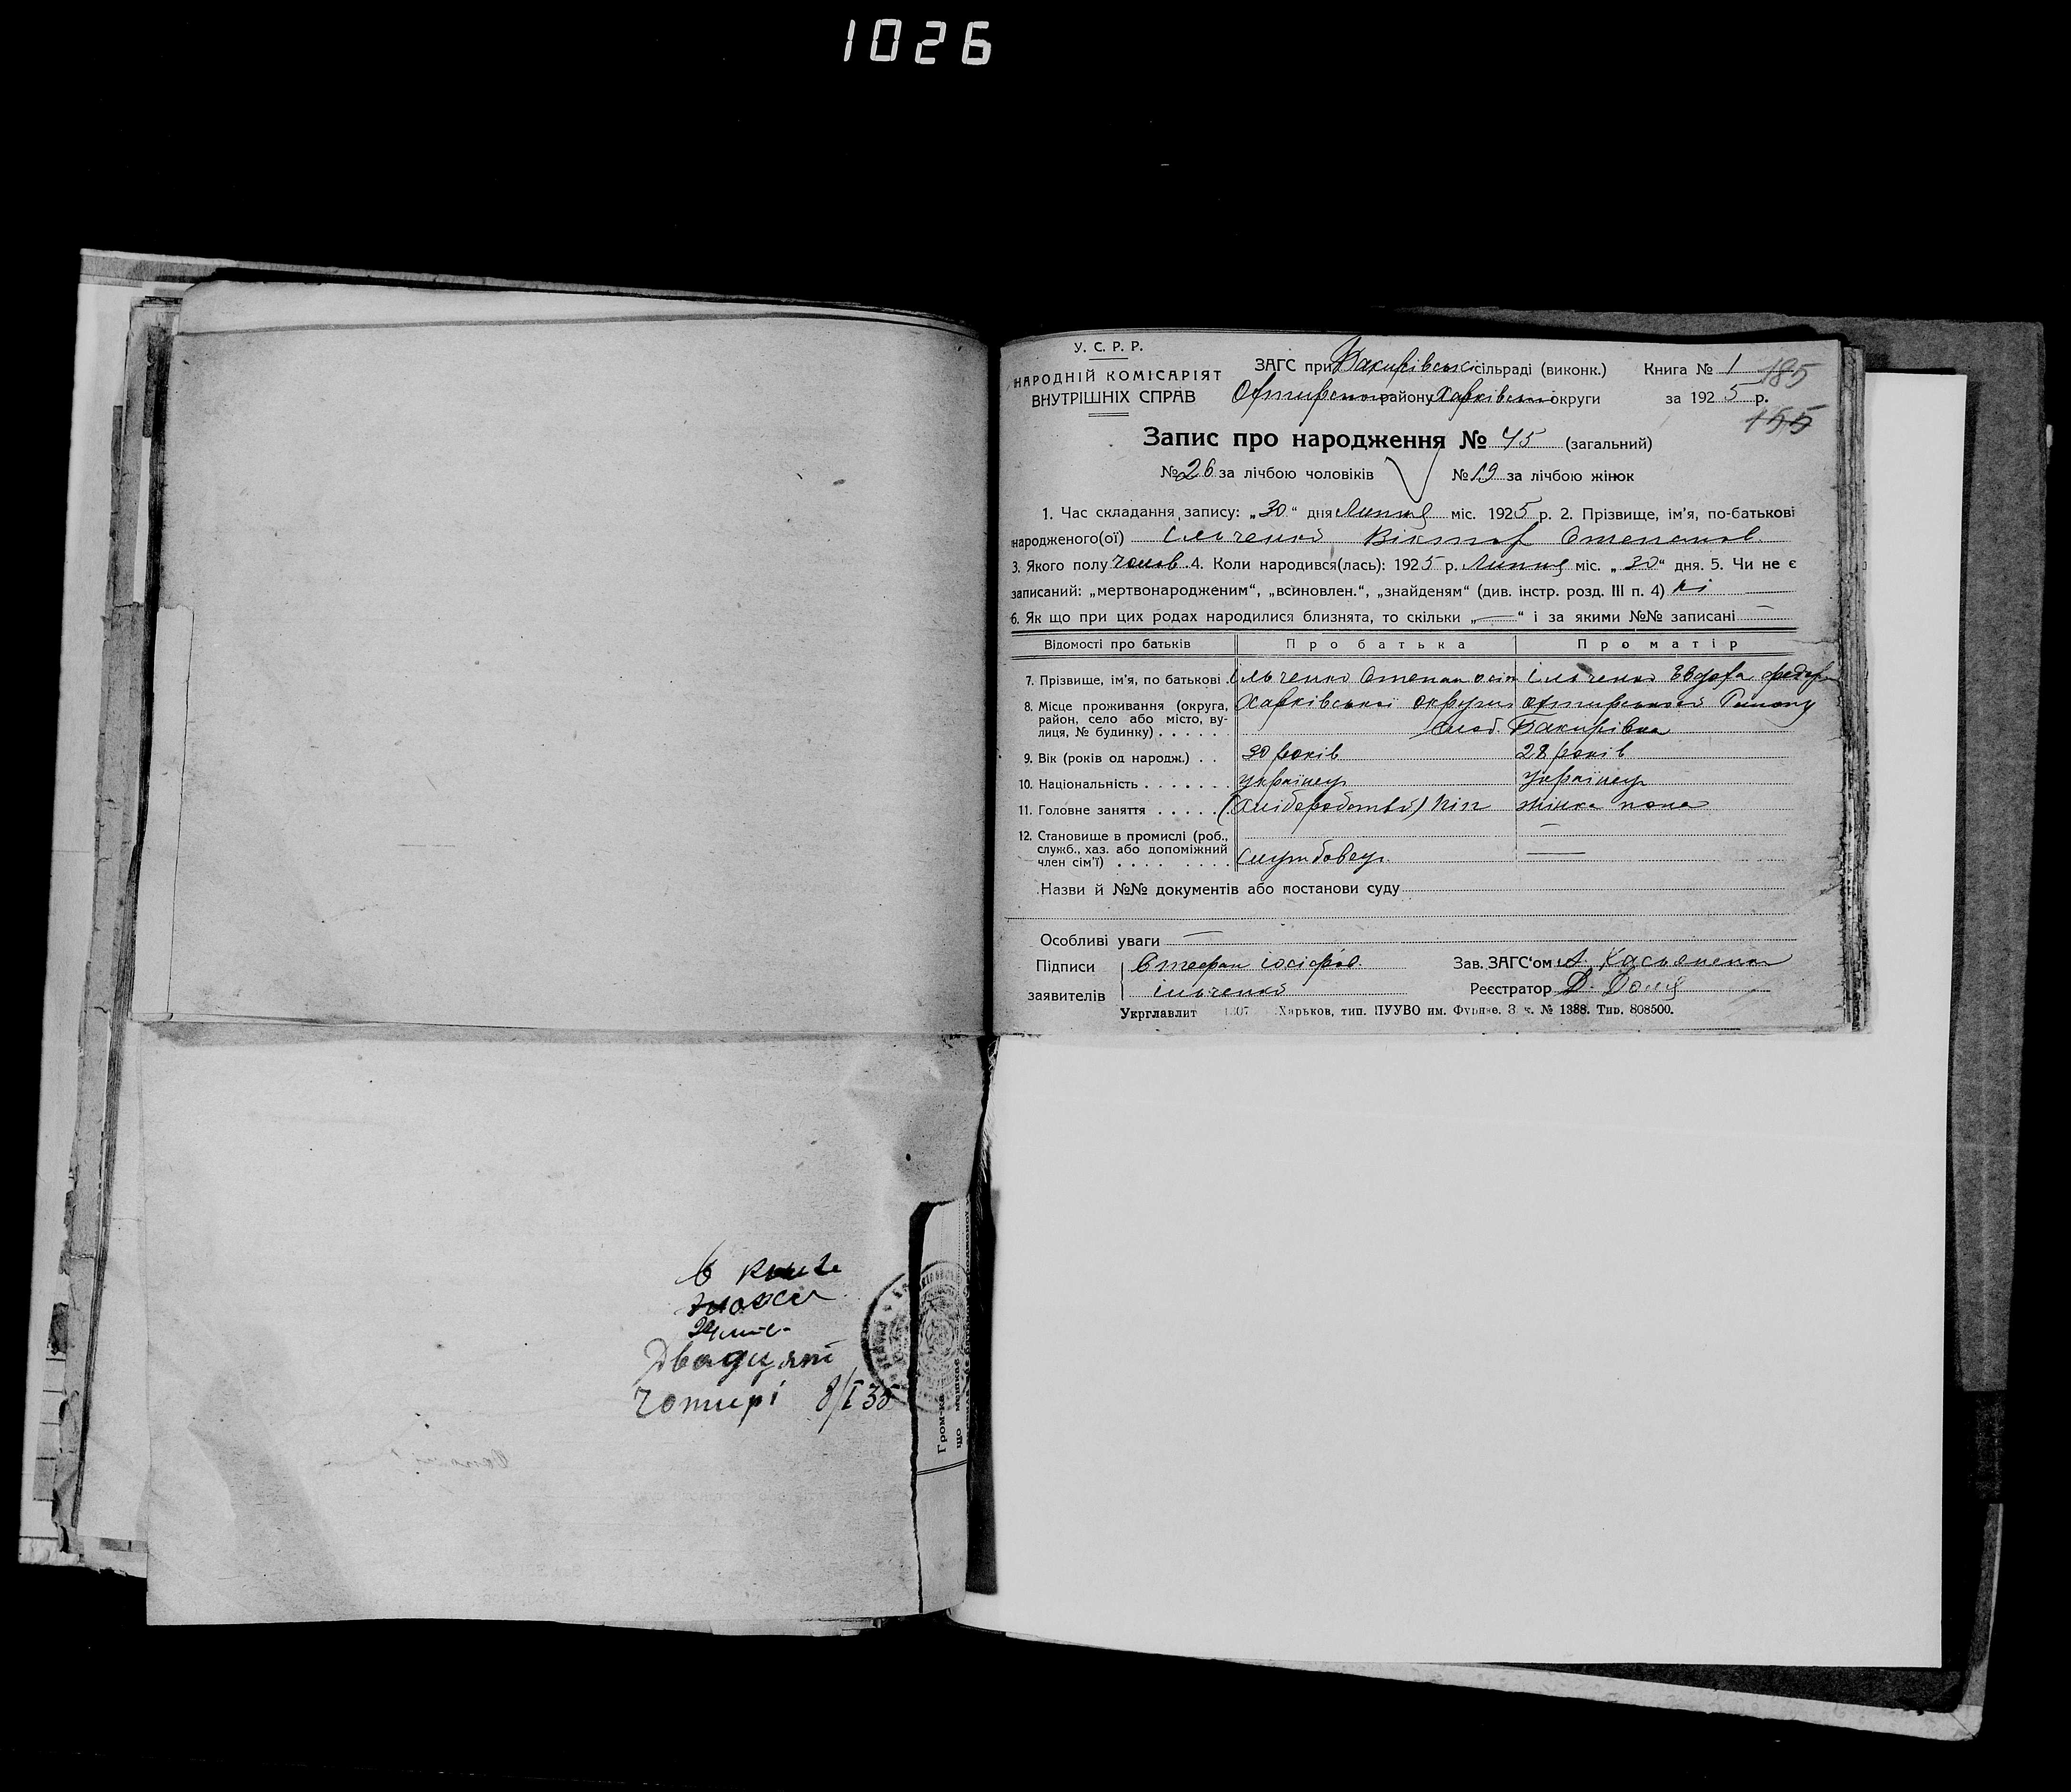 1026
У. С. Р. Р.
НАРОДНІЙ КОМІСАРІЯТ
ВНУТРІШНІХ СПРАВ
ЗАГС при Бакирівській сільраді (виконк.)
Охтирського району Харківської округи
Книга № 1
185
за 1925 р.
155
Запис про народження № 45 (загальний)
№ 26 за лічбою чоловіків № 19 за лічбою жінок
1. Час складання запису: „30“ дня Липня міс. 1925 р. 2. Прізвище, ім'я, по-батькові
народженого(ої) Ільченко Віктор Степанов.
3. Якого полу чолов. 4. Коли народився(лась): 1925 р. Липня міс. „30“ дня. 5. Чи не є
записаний: „мертвонародженим“, „всиновлен.“, „знайденям“ (див. інстр. розд. III п. 4) ні
6. Як що при цих родах народилися близнята, то скільки „—“ і за якими №№ записані —
Відомості про батьків Про батька Про матір
7. Прізвище, ім'я, по батькові Ільченко Степан Осіп Ільченко Федор
8. Місце проживання (округа, район, село або місто, вулиця, № будинку) Харківської округи Охтирського Району
слоб. Бакирівка
9. Вік (років од народж.) 30 років 28 років
10. Національність Українец Українец
11. Головне заняття (Хліборобство) піп жінка попа
12. Становище в промислі (роб., служб., хаз. або допоміжний член сім'ї) Службовец —
Назви й №№ документів або постанови суду
Особливі уваги —
Підписи заявителів Стефан Іосіфов.
Ільченко
Зав. ЗАГС'ом А. Касьяненко
Реєстратор Д. Доля
Укрглавлит Харьков, тип. ПУУВО им. Фрунзе. Зак. № 1388. Тир. 808500.
В книзі
Двадцят
чотирі 8/I 35
Гром-ка
що мешкає